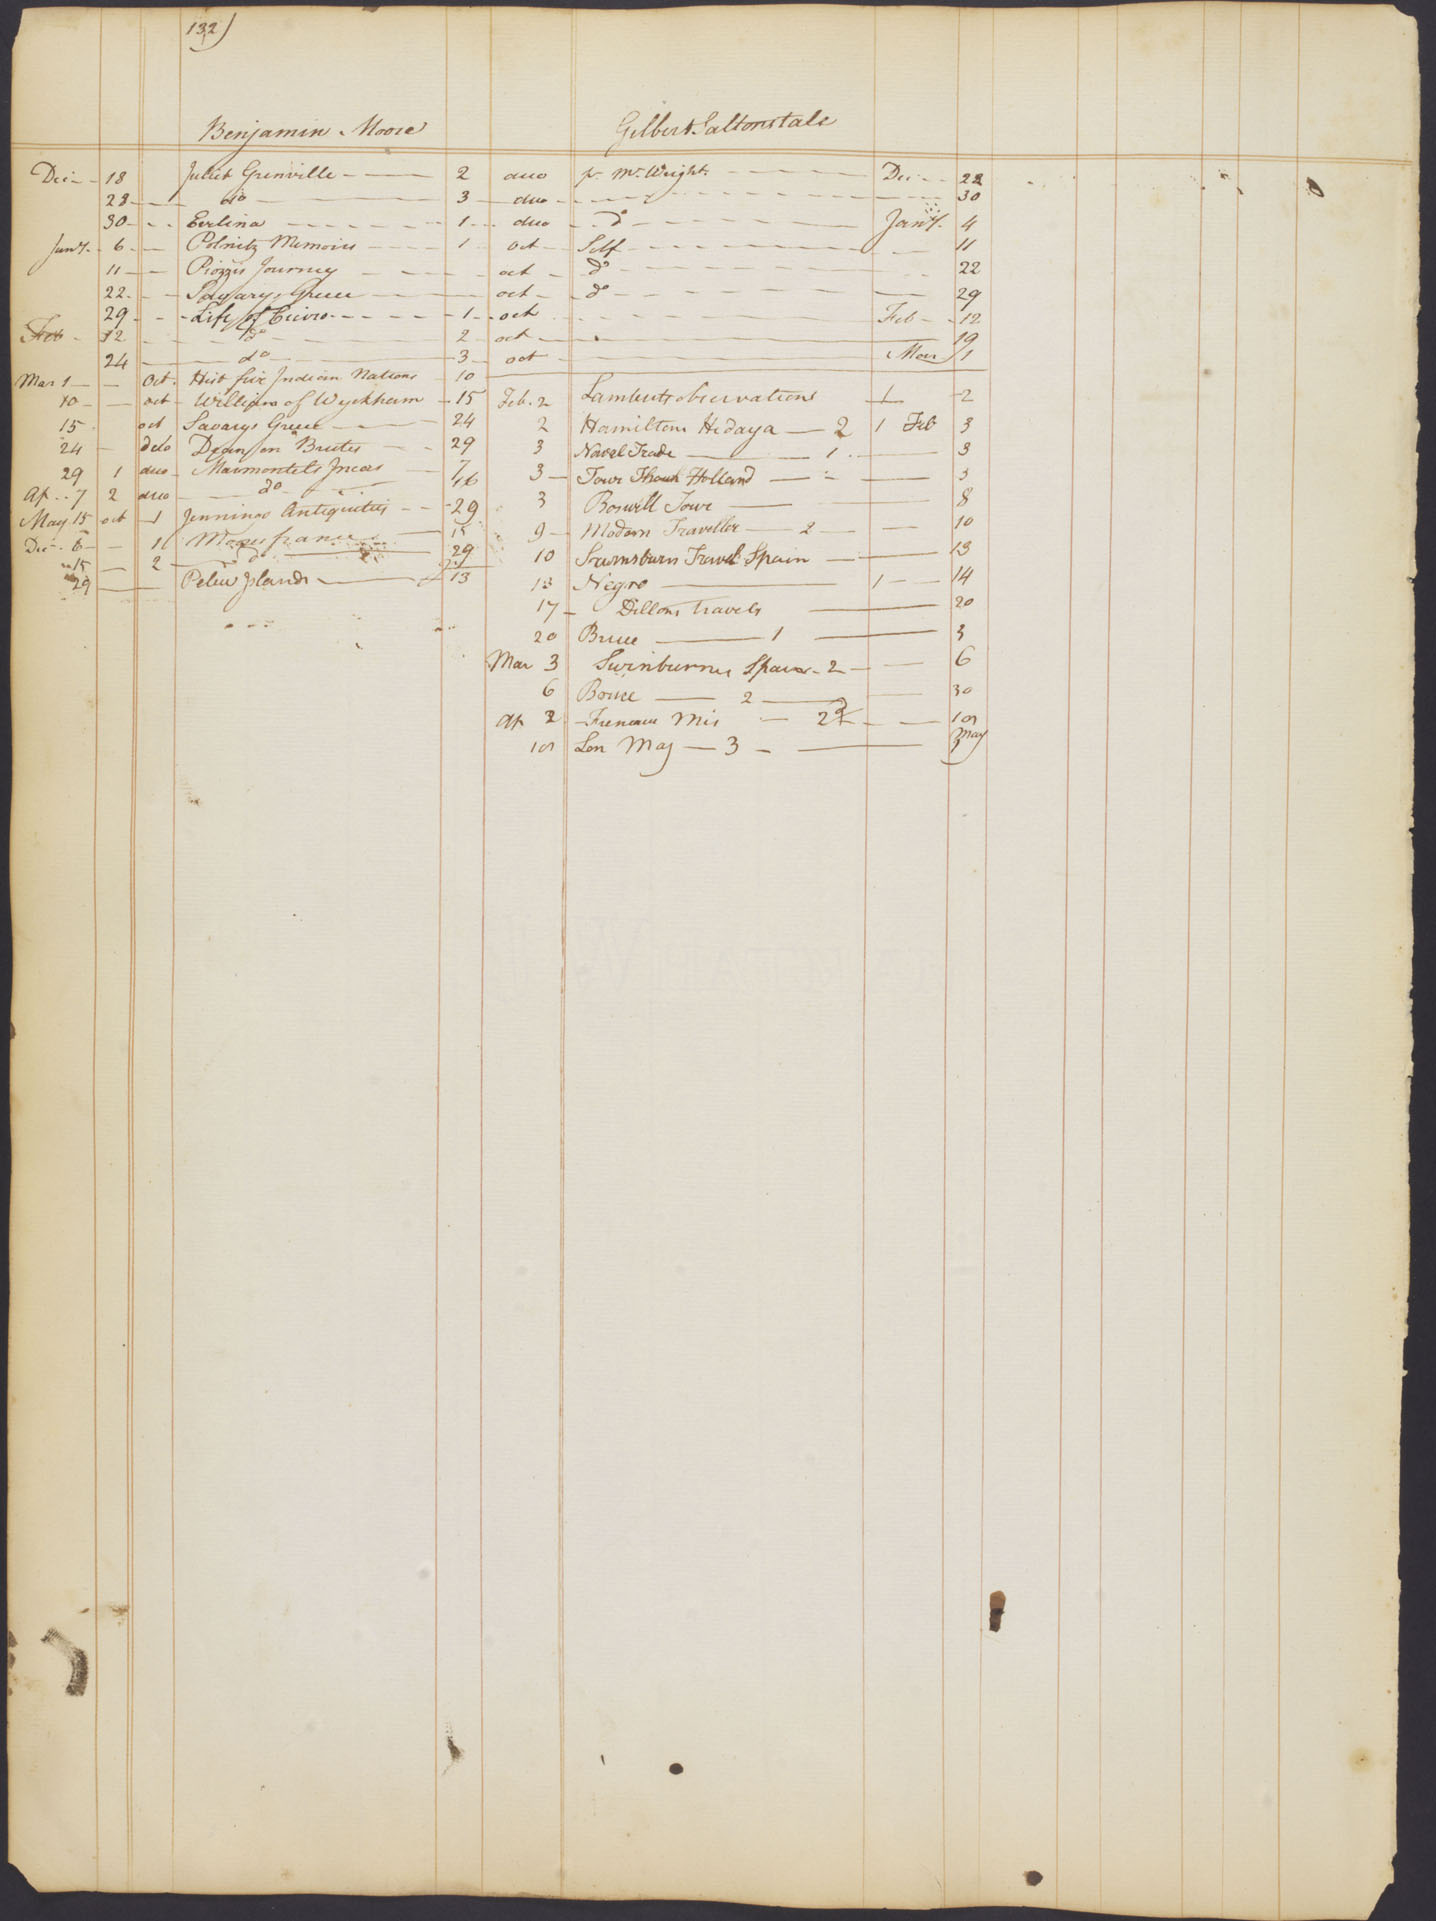 132)
Benjamin Moore
Gilbert Saltonstale
Dec 18 Juliet Grenville 2 duo pr Mr Wright Dec 22
28 do 3 duo 30
30 Evelina 1 duo do Jany 4
Jany 6 Polnitz Memoirs 1 oct Self 11
11 Piozzis Journey oct do 22
22 Savarys Greece oct do 29
29 Life of Cicero 1 oct Feb 12
Feb 12 do 2 oct 19
24 do 3 oct Mar 1
Mar 1 Oct Hist five Indian Nations 10
10 oct William of Wyckham 15
15 oct Savarys Greece 24
24 Dean on Brutes 29
29 1 duo Marmontels Incas 7
Ap 7 2 duo do 16
May 15 oct 1 Jennings Antiquities 29
Dec 6 1 Moores france 15
15 2 do 29
29 Pelew Islands 13
Feb. 2 Lamberts observations 1 2
2 Hamiltons Hedaya 2 1 Feb 3
3 Navel Trade 1 3
3 Towr Through Holland 5
3 Boswell Towr 8
9 Modern Traveller 2 10
10 Travels Spain 13
13 Negro 1 14
17 Dillons travels 20
20 Bruce 1 3
Mar 3 Swinburnes Spain 2 6
6 Bruce 2 30
Ap 2 Freneau Mis 2d 10
10 Lon Mag 3 May